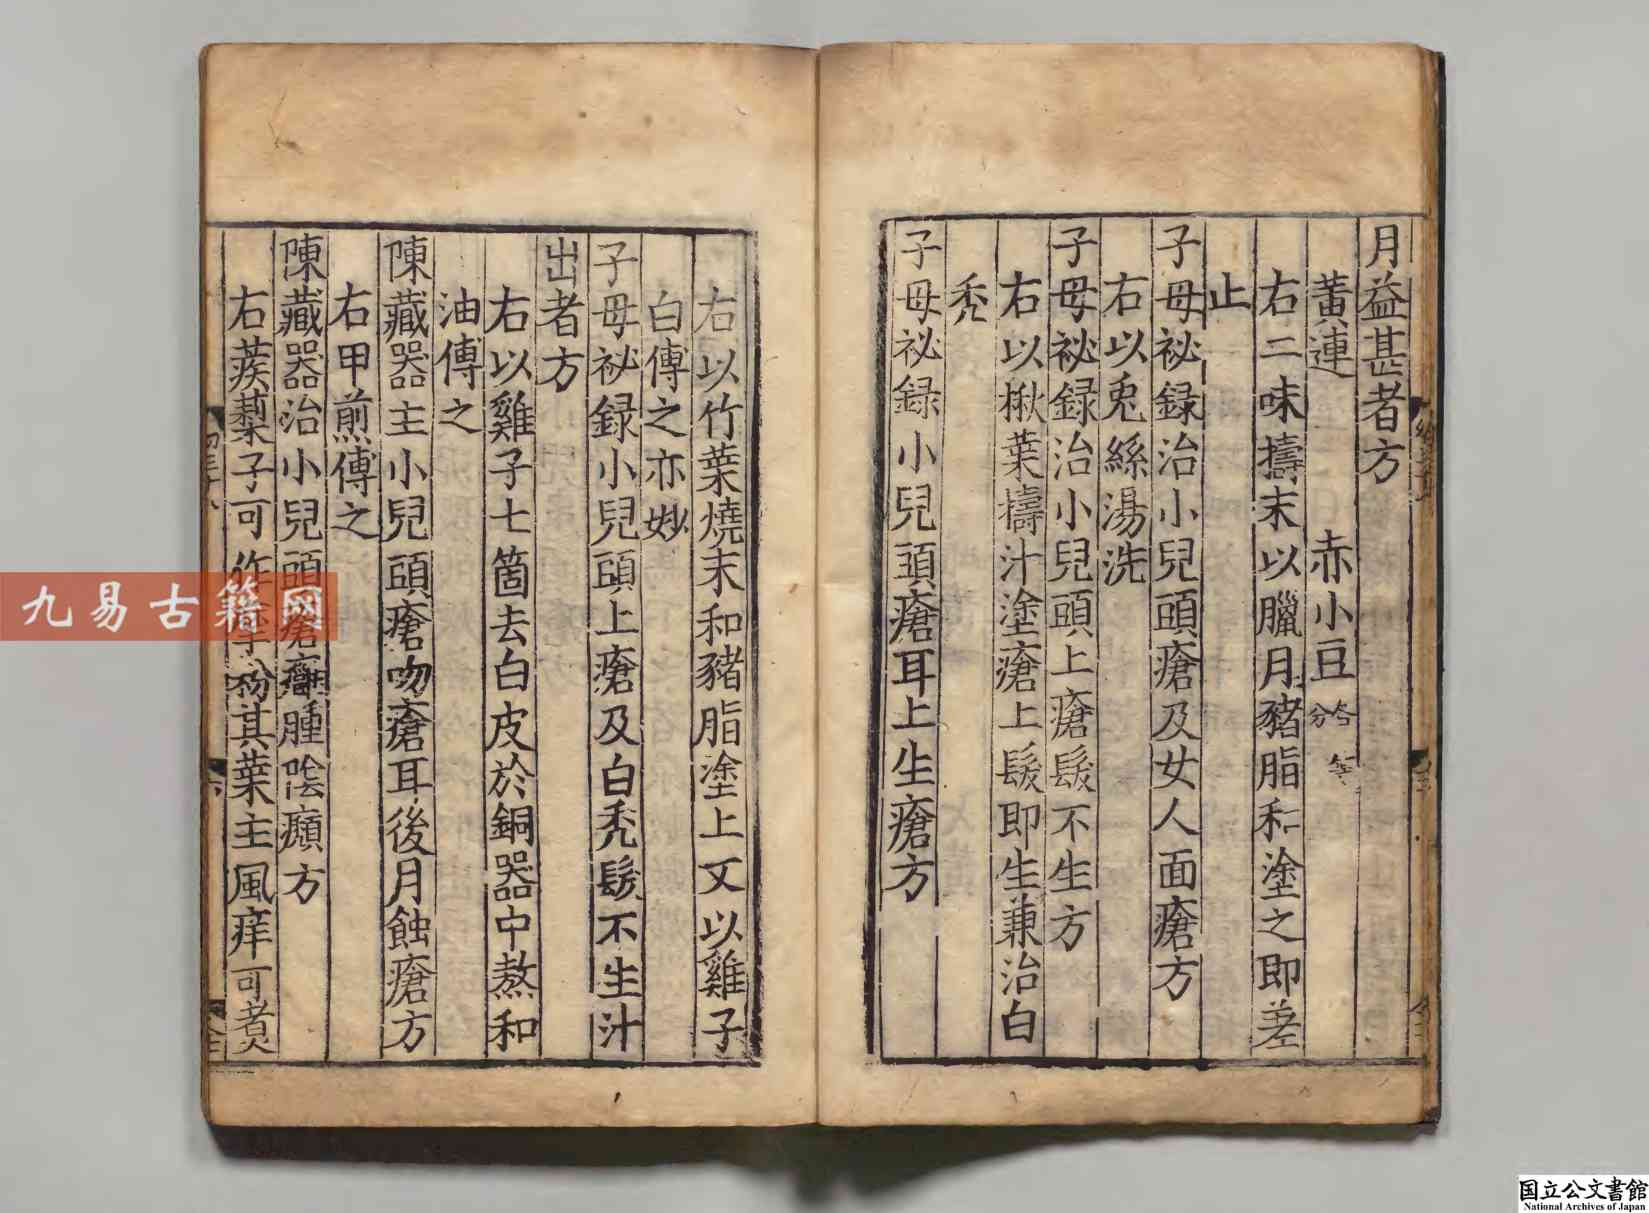 月益甚者方
黃連　赤小豆各等分
右二味擣末以臘月豬脂和塗之即差
止
子母祕録治小兒頭瘡及女人面瘡方
右以兎絲湯洗
子母祕録治小兒頭上瘡髮不生方
右以楸葉擣汁塗瘡上髮即生兼治白
禿
子母祕録小兒頭瘡耳上生瘡方
右以竹葉燒末和豬脂塗上又以雞子
白傅之亦妙
子母祕録小兒頭上瘡及白禿髮不生汁
出者方
右以雞子七箇去白皮於銅器中熬和
油傅之
陳藏器主小兒頭瘡吻瘡耳後月蝕瘡方
右甲煎傅之
陳藏器治小兒頭瘡癰腫陰㿗方
右蒺蔾子可作摩粉其葉主風痒可煮
九易古籍网
国立公文書館
National Archives of Japan